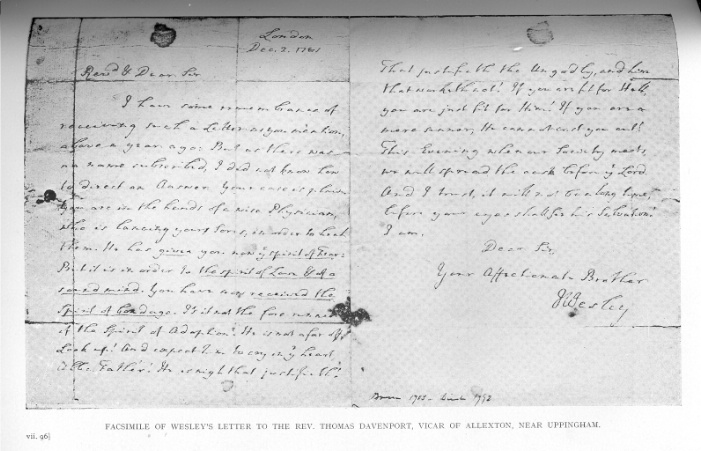 London
Dec. 2. 1781
Revd & Dear Sir
I have some remembrance of
receiving such a Letter as you mention,
above a year ago: But as there was
no name subscribed, I did not know how
to direct an Answer. Your case is plain
You are in the hands of a wise Physician,
who is lancing your Sores, in order to heal
them. He has given you now ye spirit of Fear:
But it is in order to the spirit of Love & of a
sound mind. You have now received the
Spirit of bondage. Is it not the fore runner
of the Spirit of Adoption? He is not afar off.
Look up! And expect Him to cry in yr heart,
Abba Father! He is nigh that justifieth!
That justifieth the Ungodly, and him
that worketh not! If you are fit for Hell,
you are just fit for Him! If you are a
mere sinner, He cannot cast you out!
This Evening when our Society meets,
we will spread the case before ye Lord
And I trust, it will not be a long time,
before your eyes shall see his Salvation!
I am,
Dear Sir,
Your Affectionate Brother
JWesley
Born 1703-
FACSIMILE OF WESLEY'S LETTER TO THE REV. THOMAS DAVENPORT, VICAR OF ALLEXTON, NEAR UPPINGHAM.
vii. 96]